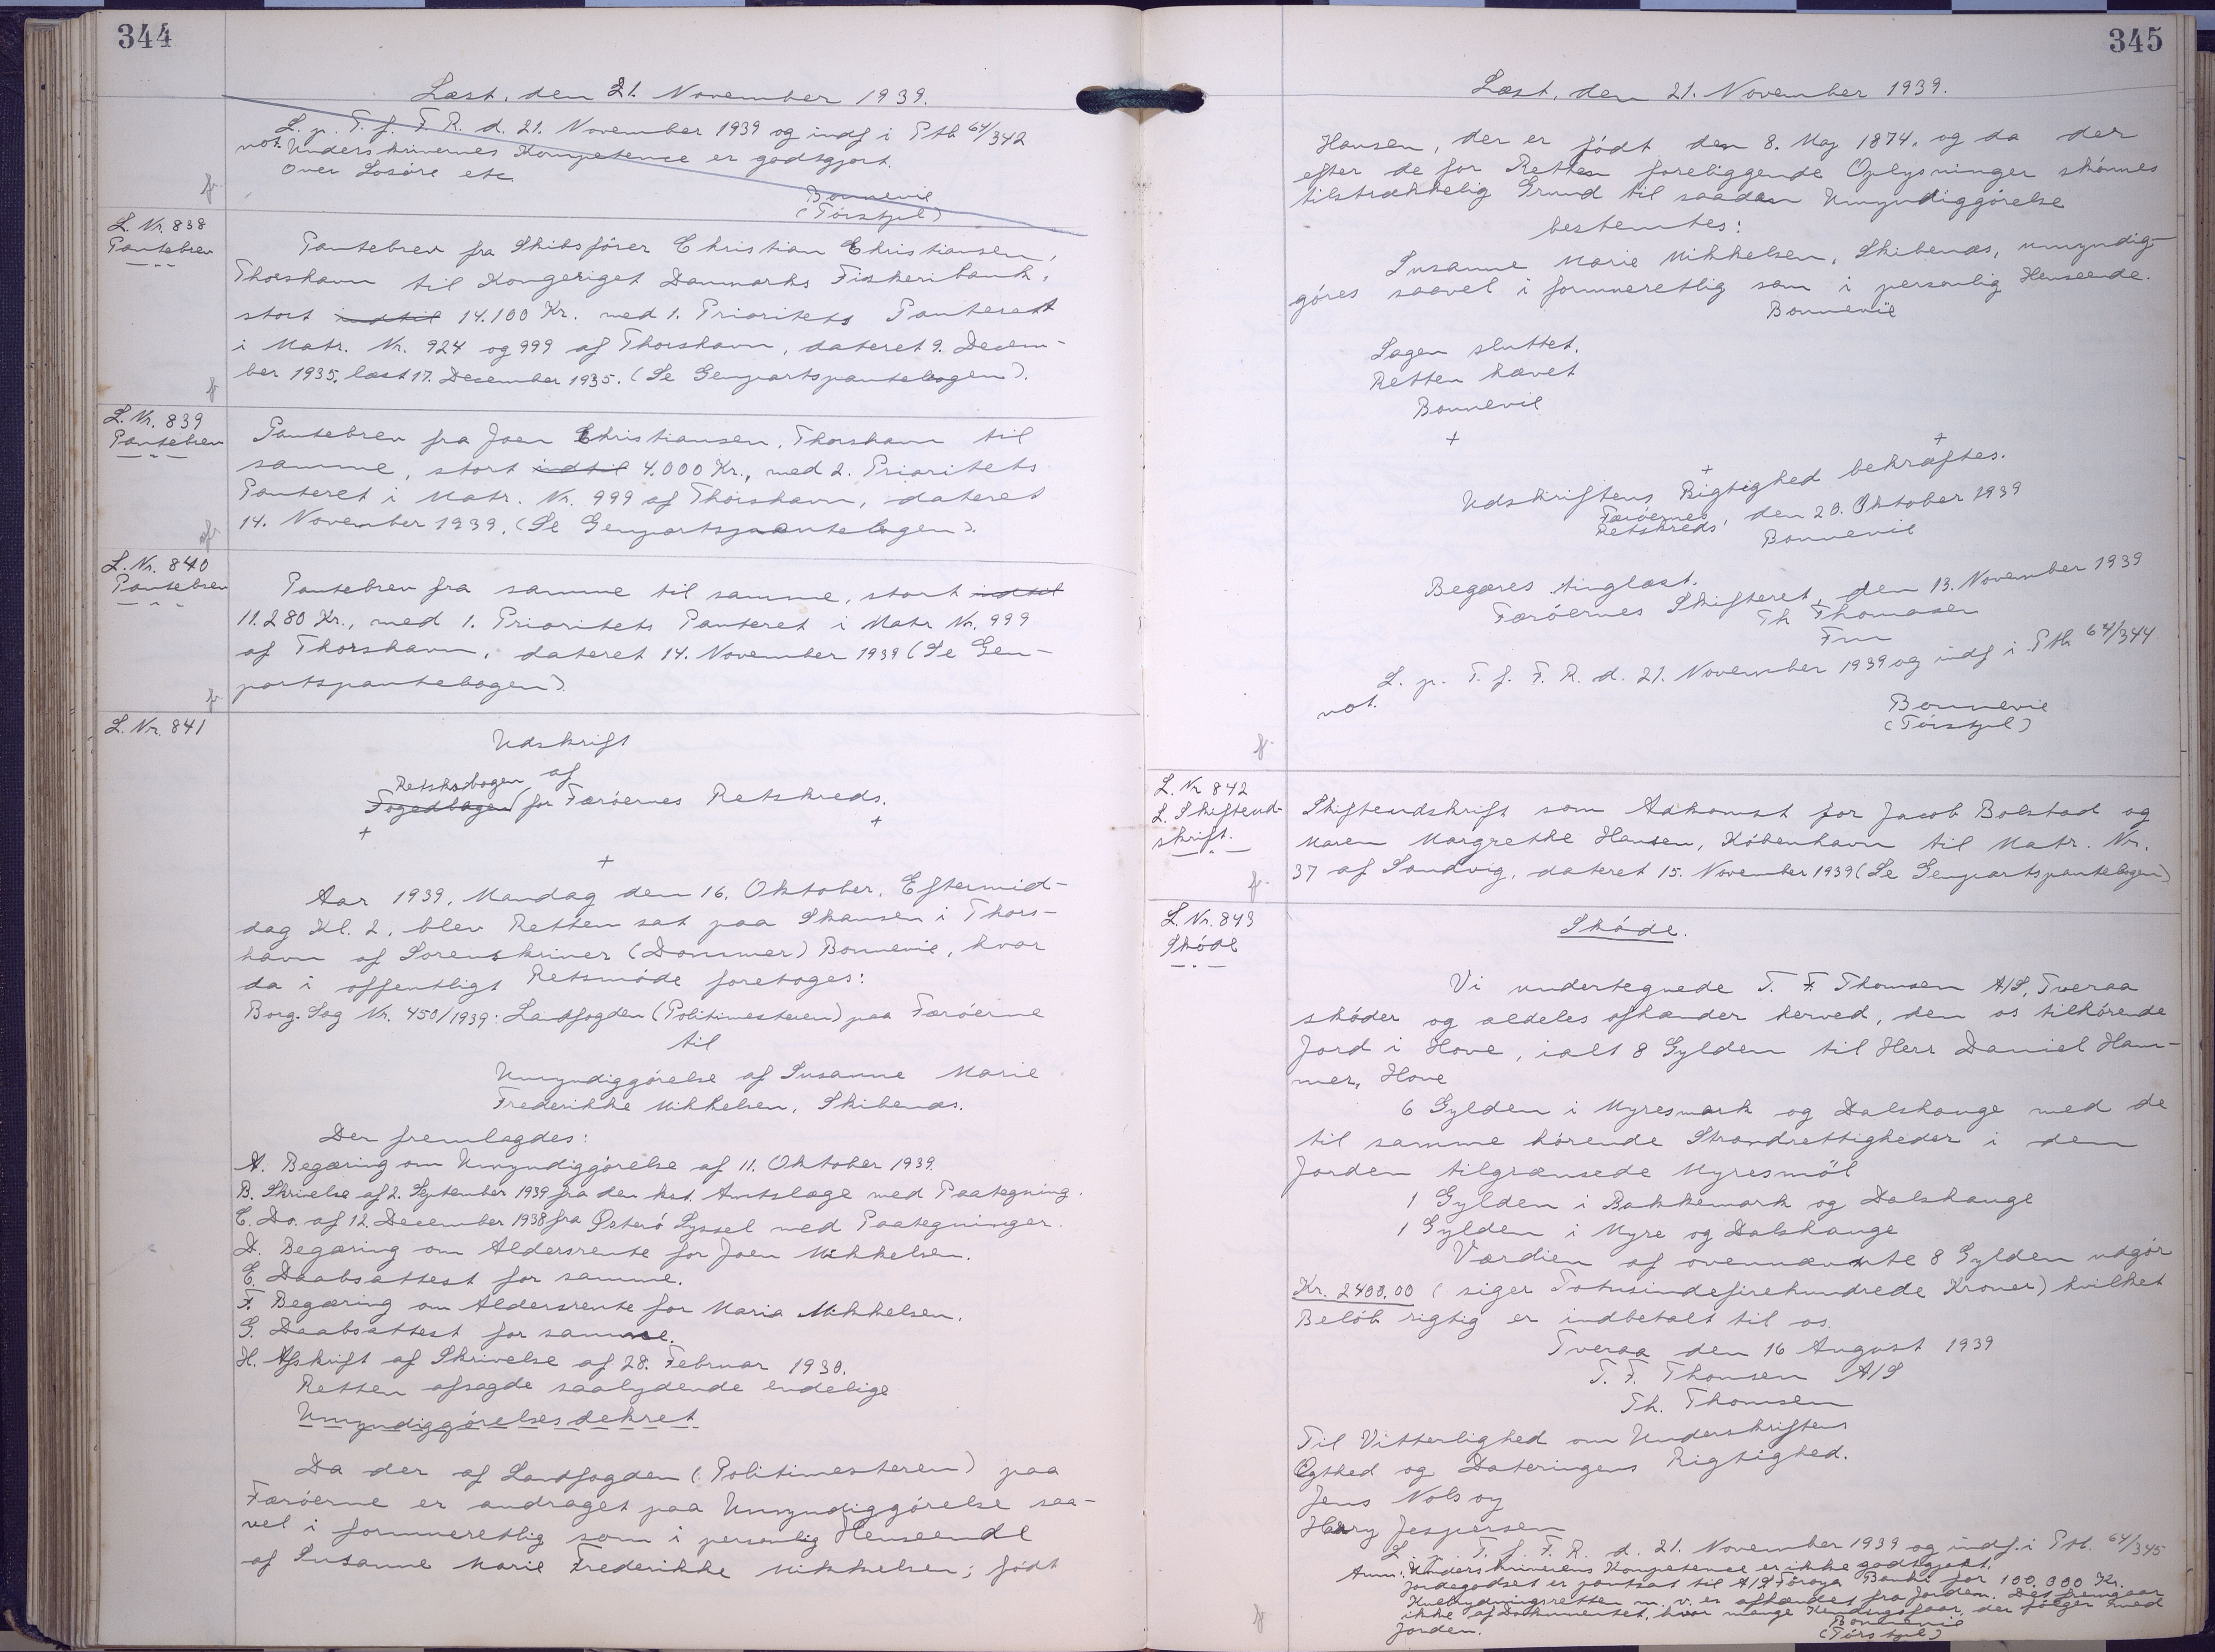 344
Læst, den 21. November 1939.
L. p. T. f. F. R. d. 21. November 1939 og indf i Ptb 64/342
not. Underskrivernes Kompetence er godtgjort.
Over Losöre etc
Bonnevie
(Tórstjul)
L. Nr. 838
Pantebrev
Pantebrev fra Skibsfører Christian Christiansen,
Thorshavn til Kongeriget Danmarks Fiskeribank,
stort indtil 14.100 Kr. med 1. Prioritets Panteret
i Matr. Nr. 924 og 999 af Thorshavn, dateret 9. Decem-
ber 1935, læst 17. Desember 1935. (Se Genpartspantebogen).
L. Nr. 839
Pantebrev
Pantebrev fra Joen Christiansen, Thorshavn til
samme, stort indtil 4.000 Kr., med 2. Prioritets
Panteret i Matr. Nr. 999 af Thorshavn, dateret
14. November 1939. (Se Genpartspantebogen).
L. Nr. 840
Pantebrev
Pantebrev fra samme til samme, stort indtil
11.280 Kr., med 1. Prioritets Panteret i Matr Nr. 999
af Thorshavn, dateret 14. November 1939 (Se Gen-
partspantebogen).
L. Nr. 841
Udskrift
af
Retsbogen
Fogedbogen for Færöernes Retskreds.
+ +
+
Aar 1939, Mandag den 16. Oktober. Eftermid-
dag Kl. 2, blev Retten sat paa Skansen i Thors-
havn af Sorenskriver (Dommer) Bonnevie, hvor
da i offentligt Retsmöde foretoges:
Borg. Sag Nr. 450/1939: Landfogden (Politimesteren) paa Færöerne
til
Umyndiggörelse af Susanne Marie
Frederikke Mikkelsen, Skibenæs.
Der fremlagdes:
A. Begæring om Umyndiggörelse af 11. Oktober 1939.
B. Skrivelse af 2. September 1939 fra den kst. Amtslæge med Paategning.
C. Do. af 12. December 1938 fra Østerö Syssel med Paategninger.
D. Begæring om Aldersrente for Joen Mikkelsen.
E. Daabsattest for samme.
F. Begæring om Aldersrente for Maria Mikkelsen.
G. Daabsattest for samme.
H. Afskrift af Skrivelse af 28. Februar 1930.
Retten afsagde saalydende endelige
Umyndiggörelsesdekret
Da der af Landfogden (Politimesteren) paa
Færöerne er andraget paa Umyndiggörelse saa-
vel i formueretlig som i personlig Henseende
af Susanne Marie Frederikke Mikkelsen; födt
345
Læst, den 21. November 1939.
Hansen, der er födt den 8. Maj 1874, og da der
efter de for Retten foreliggende Oplysninger skönnes
tilstrækkelig Grund til saadan Umyndiggörelse
bestemtes:
Susanne Marie Mikkelsen, Skibenæs, umyndig-
göres saavel i formueretlig som i personlig Henseende.
Bonnevie
Sagen sluttet.
Retten hævet
Bonnevie
+ + +
Udskriftens Rigtighed bekræftes.
Færöernes Retskreds, den 20. Oktober 1939
Bonnevie
Begæres tinglæst.
Færöernes Skifteret, den 13. November 1939
Th Thomasen
Fm
L. p. T. f. F. R. d. 21. November 1939 og indf i Ptb 64/344
not.
Bonnevie
(Tórstjul)
L. Nr 842
L. Skifteud-
skrift.
Skifteudskrift som Adkomst for Jacob Bolstad og
Maren Margrethe Hansen, Köbenhavn til Matr. Nr.
37 af Sandvig, dateret 15. November 1939 (Se Genpartspantebogen)
L. Nr. 843
Sköde
Sköde.
Vi undertegnede T. F. Thomsen A/S, Tveraa
sköder og aldeles afhænder herved, den os tilhörende
Jord i Hove, ialt 8 Gylden til Herr Daniel Ham-
mer, Hove
6 Gylden i Myresmark og Dalshauge med de
til samme hörende Strandrettigheder i den
Jorden tilgrænsede Myresmöl
1 Gylden i Bakkemark og Dalshauge
1 Gylden i Myre og Dalshauge
Værdien af ovennævnte 8 Gylden udgör
Kr. 2400,00 (siger Totusindefirehundrede Kroner) hvilket
Belöb rigtig er indbetalt til os.
Tveraa den 16 August 1939
T. F. Thomsen A/S
Th. Thomsen
Til Vitterlighed om Underskriftens
Ægthed og Dateringens Rigtighed.
Jens Nolsøy
Harry Jespersen
L. p. T. f. F. R. d. 21. November 1939 og indf. i Ptb. 64/345
Anm: Underskriverens Kompetence er ikke godtgjort.
Jordegodset er pantsat til A/S Föroya Banki for 100.000 Kr.
m. v. er afhændet fra Jorden. Det fremgaar
ikke af Dokumentet, hvor mange der fölger med
Jorden.
Bonnevie
(Tórstjul)